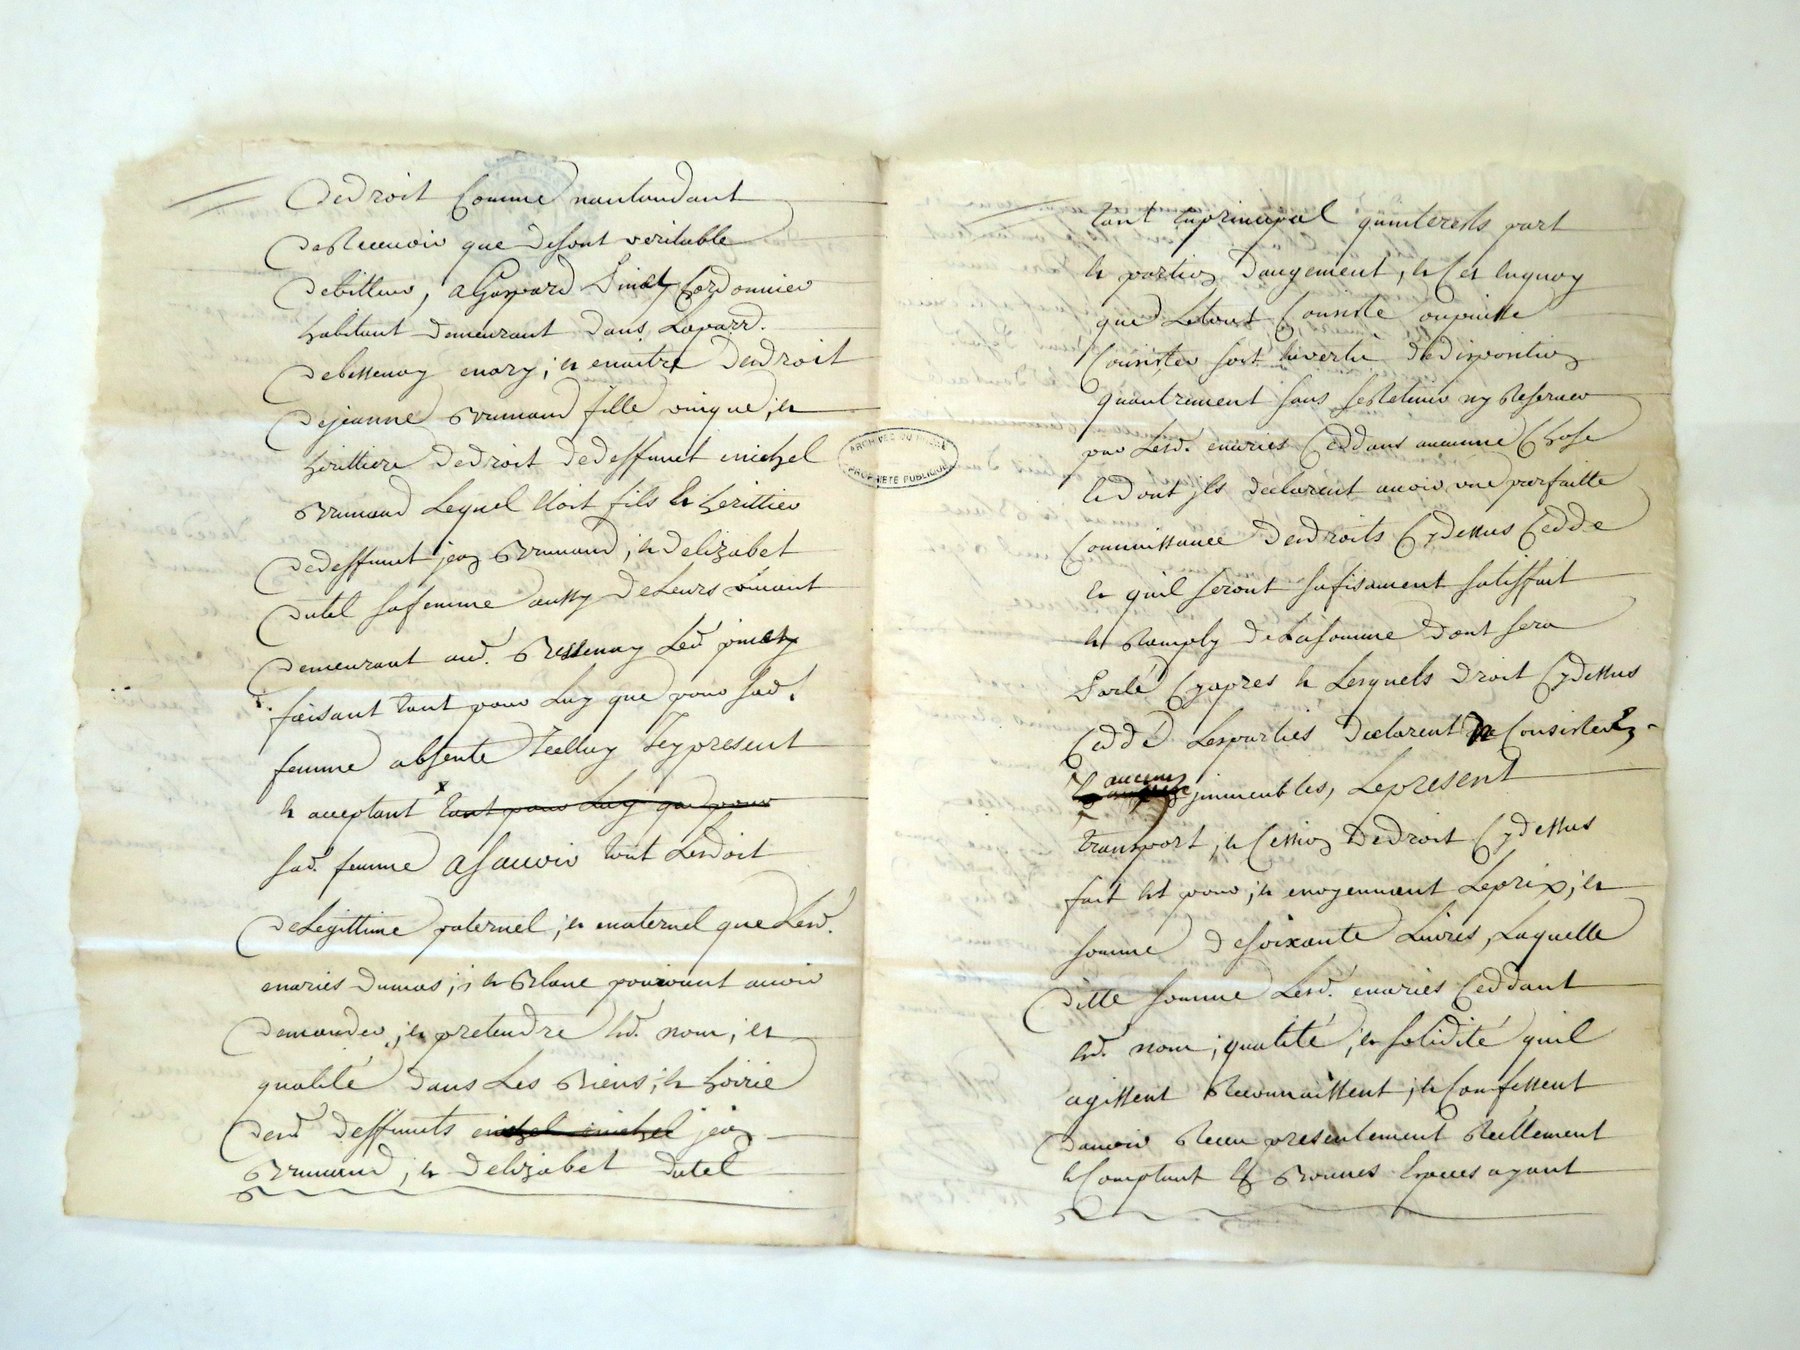 de droit comme nantandant
de Recevoir que desont veritable
debitteur, a Gaspard pinet Cordonnier
habitant demeurant dans Laparr.
de bessenay mary, et maitre dedroit
de jeanne Brunaud fille unique, et
herittiere dedroit dedeffunct michel
Brunaud Lequel etoit fils et herittier
dedeffunt jean Brunaud, et delizabet
dutel safemme aussy de Leurs vivant
demeurant aud. Bessenay Led. pinet
faisant tant pour Luy que pour sad.
femme absente Icelluy Icy present
et acceptant x tant pour Luy que pour
sad. femme asavoir tout Ledroit
de Legittime paternel, et maternel que Lesd.
maries dumas, et Blanc pouvont avoir
demander, et pretendre aud. nom, et
qualité dans Les Biens, et hoirie
desd. deffunts michel michel jean
Brunaud, et delizabet dutel
tant enprincipal quinterets part
et portion daugement, et Ces enquoy
que Letout Consiste oupuisse
Consister soit Invertie dedisposition
quautrement sans seRetenir ny Reserver
par Lesd. maries Ceddans aucunne Chose
et dont jls declarent avoir une parfaitte
Connoissance desdroits Cydessus Cedde
et quil seront sufisament satisffait
et Remply de Lasomme dont sera
Parlé Cyapres et Lesquels droit Cydessus
Cedde Lesparties declarent ne Consister En
aucuns jmmeubles, Lepresent
transport, et Cession dedroit Cydessus
fait est pour, et moyennant Leprix, et
somme de soixante Livres, Laquelle
ditte somme Lesd. maries Ceddant
aud. nom, qualité, et solidité quil
agissent Reconnaissent, et Confessent
davoir Receu presentement Reellement
et Comptant Es Bonnes Especes ayant
ARCHIVES DU RHÔNE
PROPRIÉTÉ PUBLIQUE